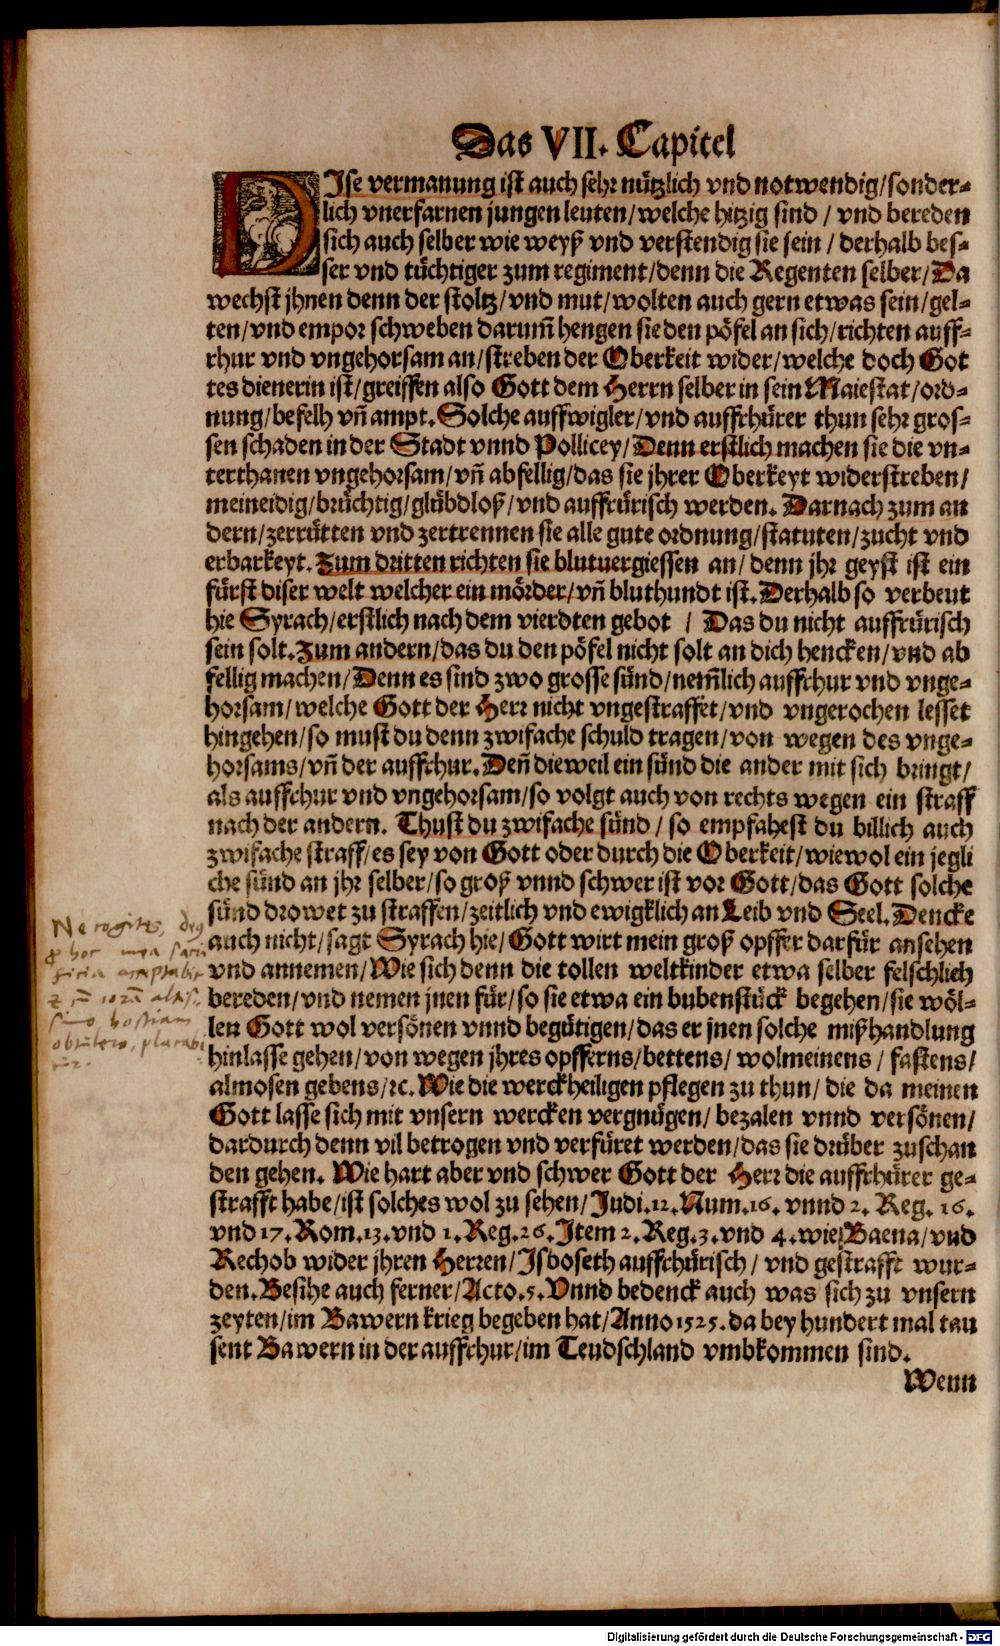 Das VII. Capitel
DIse vermanung ist auch sehr nützlich vnd notwendig/sonder-
lich vnerfarnen jungen leuten/welche hitzig sind / vnd bereden
sich auch selber wie weyß vnd verstendig sie sein / derhalb bes-
ser vnd tüchtiger zum regiment/denn die Regenten selber/Da
wechst jhnen denn der stoltz/vnd mut/wolten auch gern etwas sein/gel-
ten/vnd empor schweben darum̃ hengen sie den pöfel an sich/richten auff-
rhur vnd vngehorsam an/streben der Oberkeit wider/welche doch Got
tes dienerin ist/greiffen also Gott dem Herrn selber in sein Maiestat/ord-
nung/befelh vñ ampt. Solche auffwigler/vnd auffrhürer thun sehr gros-
sen schaden in der Stadt vnnd Pollicey/Denn erstlich machen sie die vn-
terthanen vngehorsam/vñ abfellig/das sie jhrer Oberkeyt widerstreben/
meineidig/brüchtig/glübdloß/vnd auffrürisch werden. Darnach zum an
dern/zerrütten vnd zertrennen sie alle gute ordnung/statuten/zucht vnd
erbarkeyt. Zum dritten richten sie blutuergiessen an/ denn jhr geyst ist ein
fürst diser welt welcher ein mörder/vñ bluthundt ist. Derhalb so verbeut
hie Syrach/erstlich nach dem vierdten gebot / Das du nicht auffrürisch
sein solt. Zum andern/das du den pöfel nicht solt an dich hencken/vnd ab
fellig machen/Denn es sind zwo grosse sünd/nem̃lich auffrhur vnd vnge-
horsam/welche Gott der Herr nicht vngestraffet/vnd vngerochen lesset
hingehen/so must du denn zwifache schuld tragen/von wegen des vnge-
horsams/vñ der auffrhur. Deñ dieweil ein sünd die ander mit sich bringt/
als auffrhur vnd vngehorsam/so volgt auch von rechts wegen ein straff
nach der andern. Thust du zwifache sünd / so empfahest du billich auch
zwifache straff/es sey von Gott oder durch die Oberkeit/wiewol ein jegli
che sünd an jhr selber/so groß vnnd schwer ist vor Gott/das Gott solche
sünd drowet zu straffen/zeitlich vnd ewigklich an Leib vnd Seel. Dencke
auch nicht/sagt Syrach hie/Gott wirt mein groß opffer darfür ansehen
vnd annemen/Wie sich denn die tollen weltkinder etwa selber felschlich
bereden/vnd nemen jnen für/so sie etwa ein bubenstück begehen/sie wöl-
len Gott wol versönen vnnd begütigen/das er jnen solche mißhandlung
hinlasse gehen/von wegen jhres opfferns/bettens/ wolmeinens / fastens/
almosen gebens/ꝛc. Wie die werckheiligen pflegen zu thun/ die da meinen
Gott lasse sich mit vnsern wercken vergnügen/ bezalen vnnd versönen/
dardurch denn vil betrogen vnd verfüret werden/das sie drüber zuschan
den gehen. Wie hart aber vnd schwer Gott der Herr die auffrhürer ge-
strafft habe/ist solches wol zu sehen/Judi.12. Num.16. vnnd 2. Reg. 16.
vnd 17. Rom.13. vnd 1. Reg.26. Item 2. Reg.3. vnd 4. wie Baena/vnd
Rechob wider jhren Herren/Isboseth auffrhürisch / vnd gestrafft wur-
den. Besihe auch ferner/Acto.5. Vnnd bedenck auch was sich zu vnsern
zeyten/im Bawern krieg begeben hat/Anno 1525. da bey hundert mal tau
sent Bawern in der auffrhur/im Teudschland vmbkommen sind.
Wenn
Ne cogites, deus
hoc mea
acceptabit
hostiam
Digitalisierung gefördert durch die Deutsche Forschungsgemeinschaft - DFG